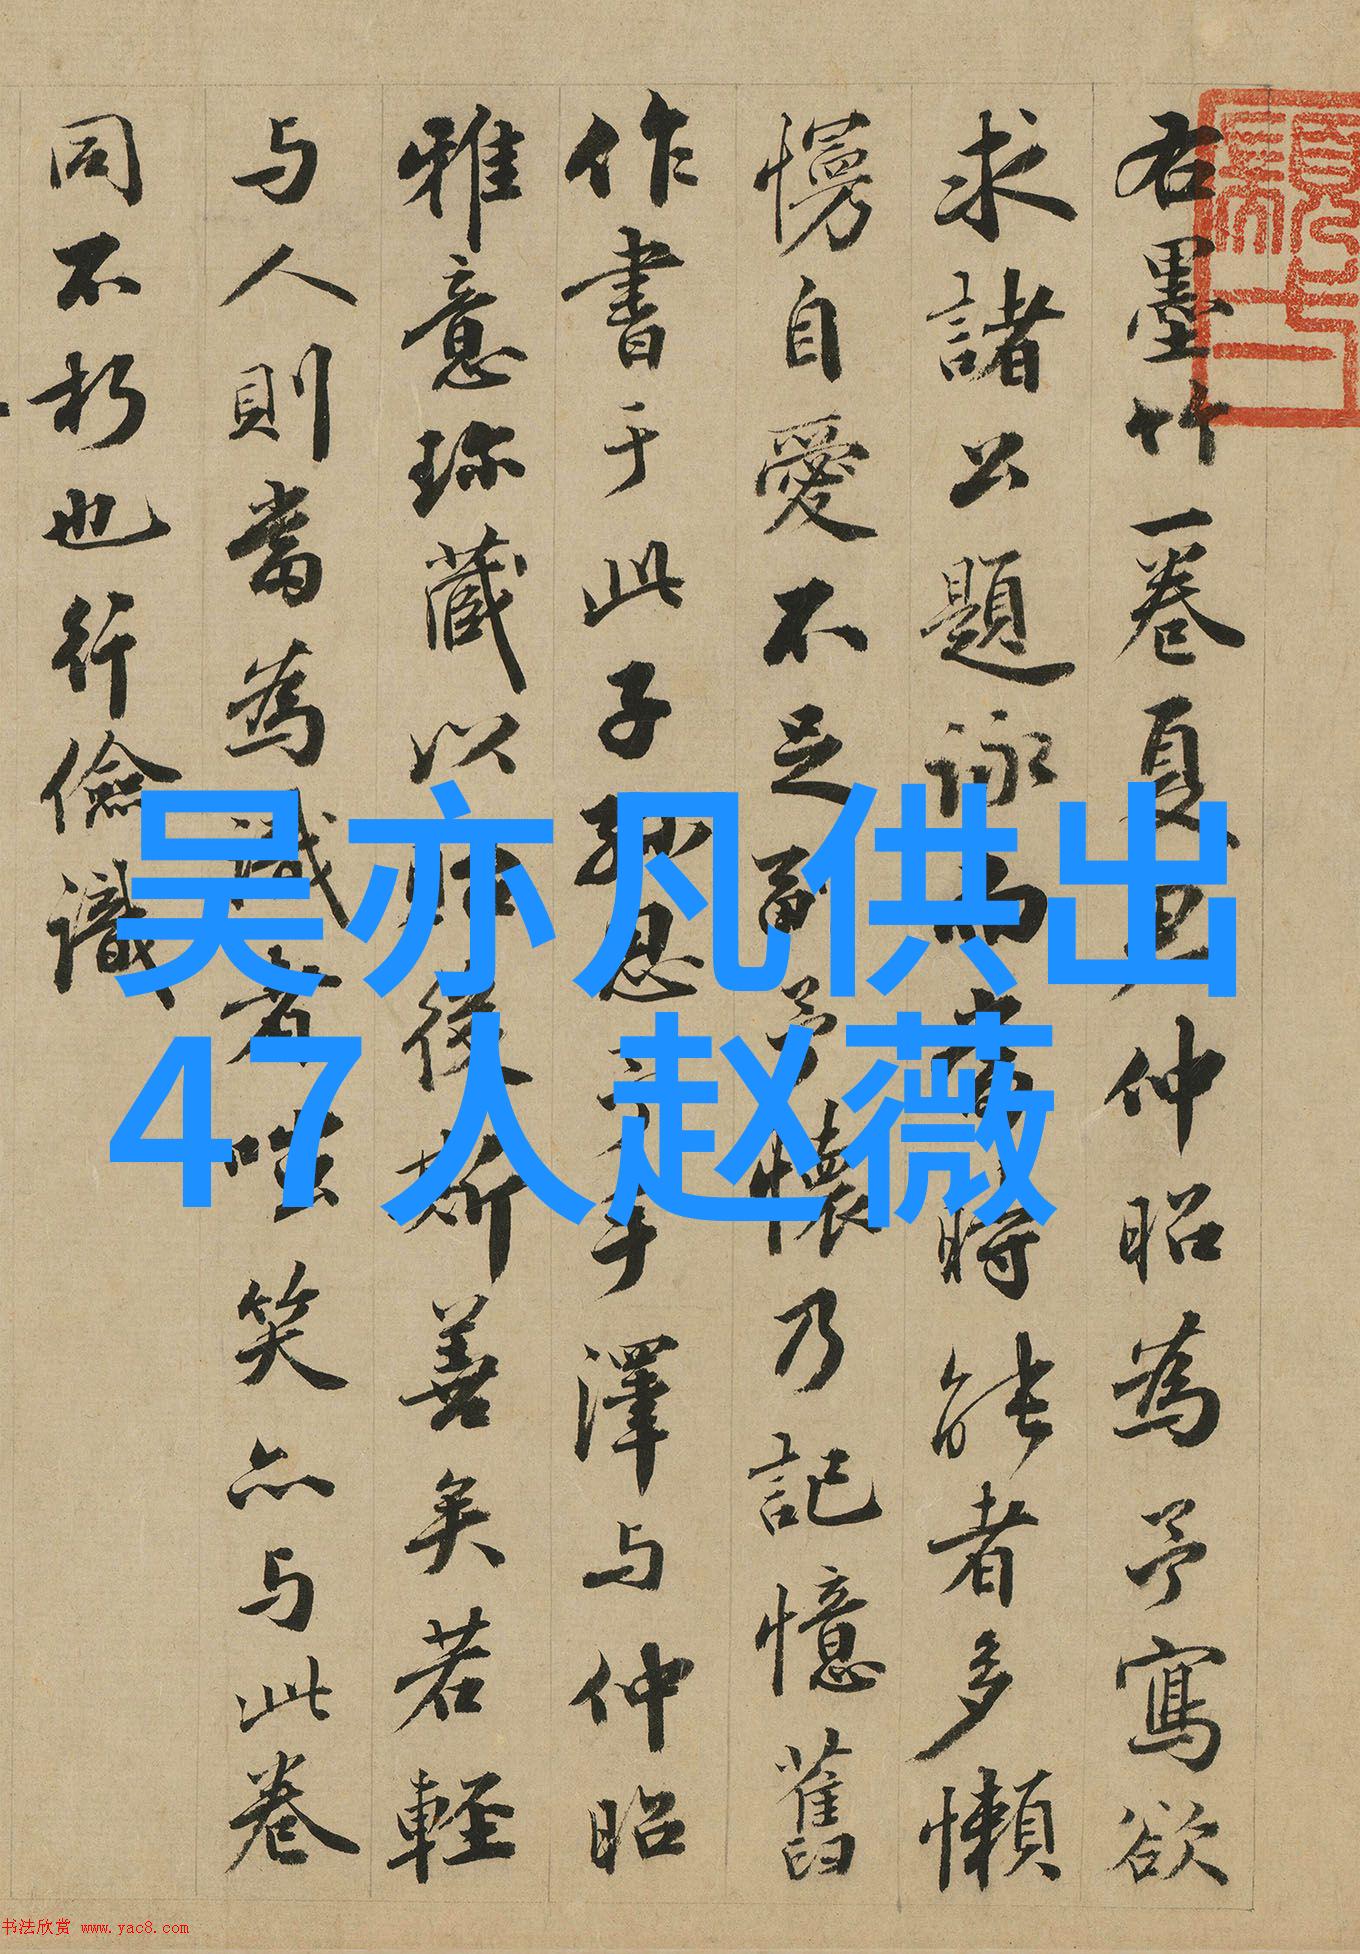 右墨竹一卷夏仲昭為予寫欲
求諸公題詠而時能者多懶
慢自愛不足副予懷乃記憶舊
作書于此子孫思手澤与仲昭
雅意珎藏以貽後斯善矣若輕
与人則當為識者嗤笑亦与此卷
同不朽也行儉識
吴亦凡供出
47人赵薇
书法欣赏 www.yac8.com